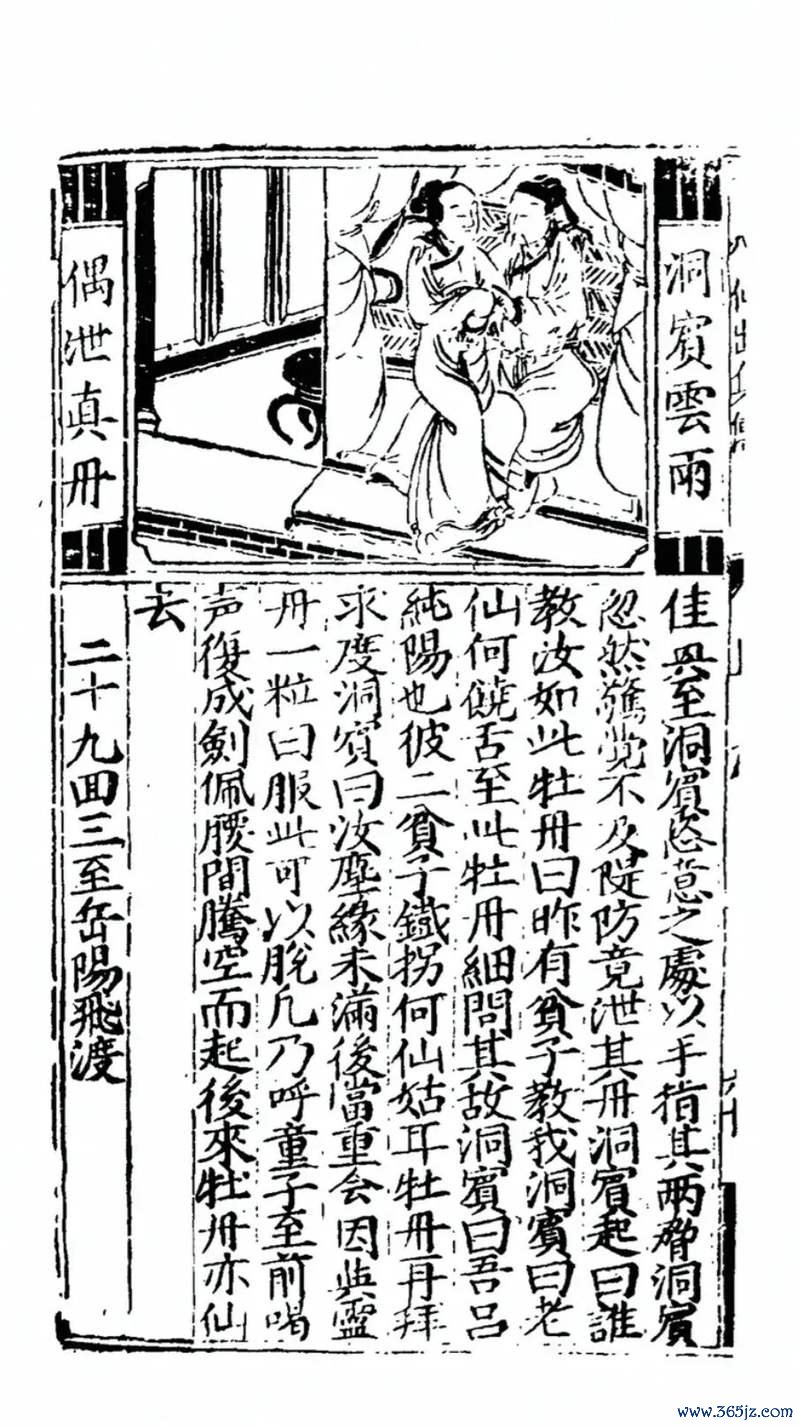 洞賓雲雨
偶泄真丹
佳興至洞賓恣意之處以手指其兩脅洞賓
忽然驚覺不及隄防竟泄其丹洞賓起曰誰
教汝如此牡丹曰昨有貧子教我洞賓曰老
仙何饒舌至此牡丹細問其故洞賓曰吾呂
純陽也彼二貧子鐵拐何仙姑耳牡丹再拜
求度洞賓曰汝塵緣未滿後當重会因與靈
丹一粒曰服此可以脫凡乃呼童子至前喝
声復成劍佩腰間騰空而起後來牡丹亦仙
去
二十九回三至岳陽飛渡
www.365jz.com